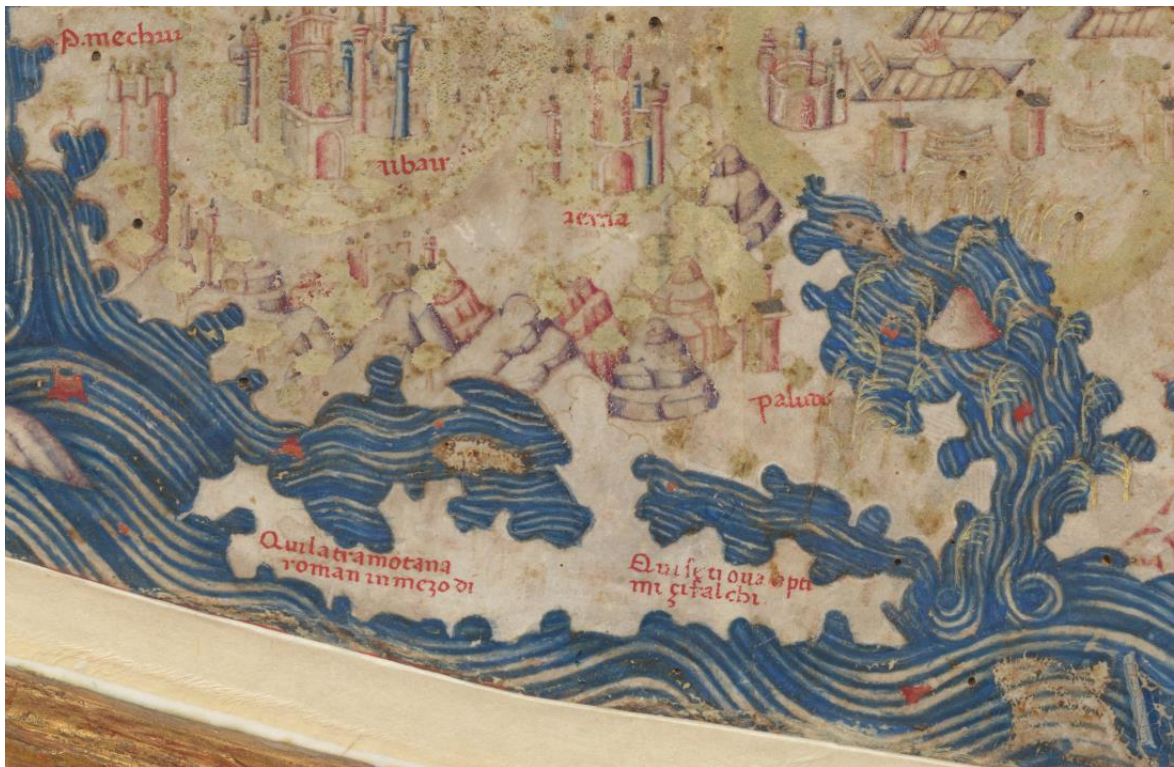 P. mechin
ubair
paludo
Qui la tramotana
roman in mezo di
Qui se trova opti
mi girfalchi